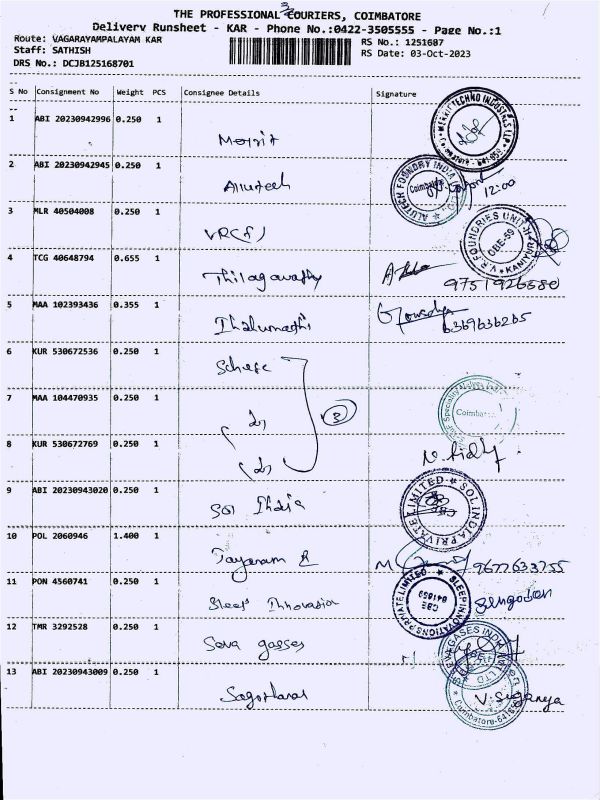 3
THE PROFESSIONAL COURIERS, COIMBATORE
Delivery Runsheet - KAR - Phone No.:0422-3505555 - Page No.:1
Route: VAGARAYAMPALAYAM KAR
RS No.: 1251687
Staff: SATHISH
RS Date: 03-Oct-2023
DRS No.: DCJB125168701
S No Consignment No Weight PCS Consignee Details Signature
1 ABI 20230942996 0.250 1
Merrit
2 ABI 20230942945 0.250 1
Alutech
ALUTECH FOUNDRY INDIA
Coimbatore
12:00
3 MLR 40504008 0.250 1
VRC(f)
V.R. FOUNDRIES UNIT-II
CBE-59
4 TCG 40648794 0.655 1
Thilagavathy
9751926680
5 MAA 102393436 0.355 1
6369636265
6 KUR 530672536 0.250 1
7 MAA 104470935 0.250 1
3
Coimbatore
8 KUR 530672769 0.250 1
9 ABI 20230943020 0.250 1
Sol India
SOL INDIA PRIVATE LIMITED
10 POL 2060946 1.400 1
Jayaram R
9677633755
11 PON 4560741 0.250 1
Sleep Innovation
SLEEP INNOVATIONS PRIVATE LIMITED
CBE
641659
12 TMR 3292528 0.250 1
Seva gasses
13 ABI 20230943009 0.250 1
V. Suganya